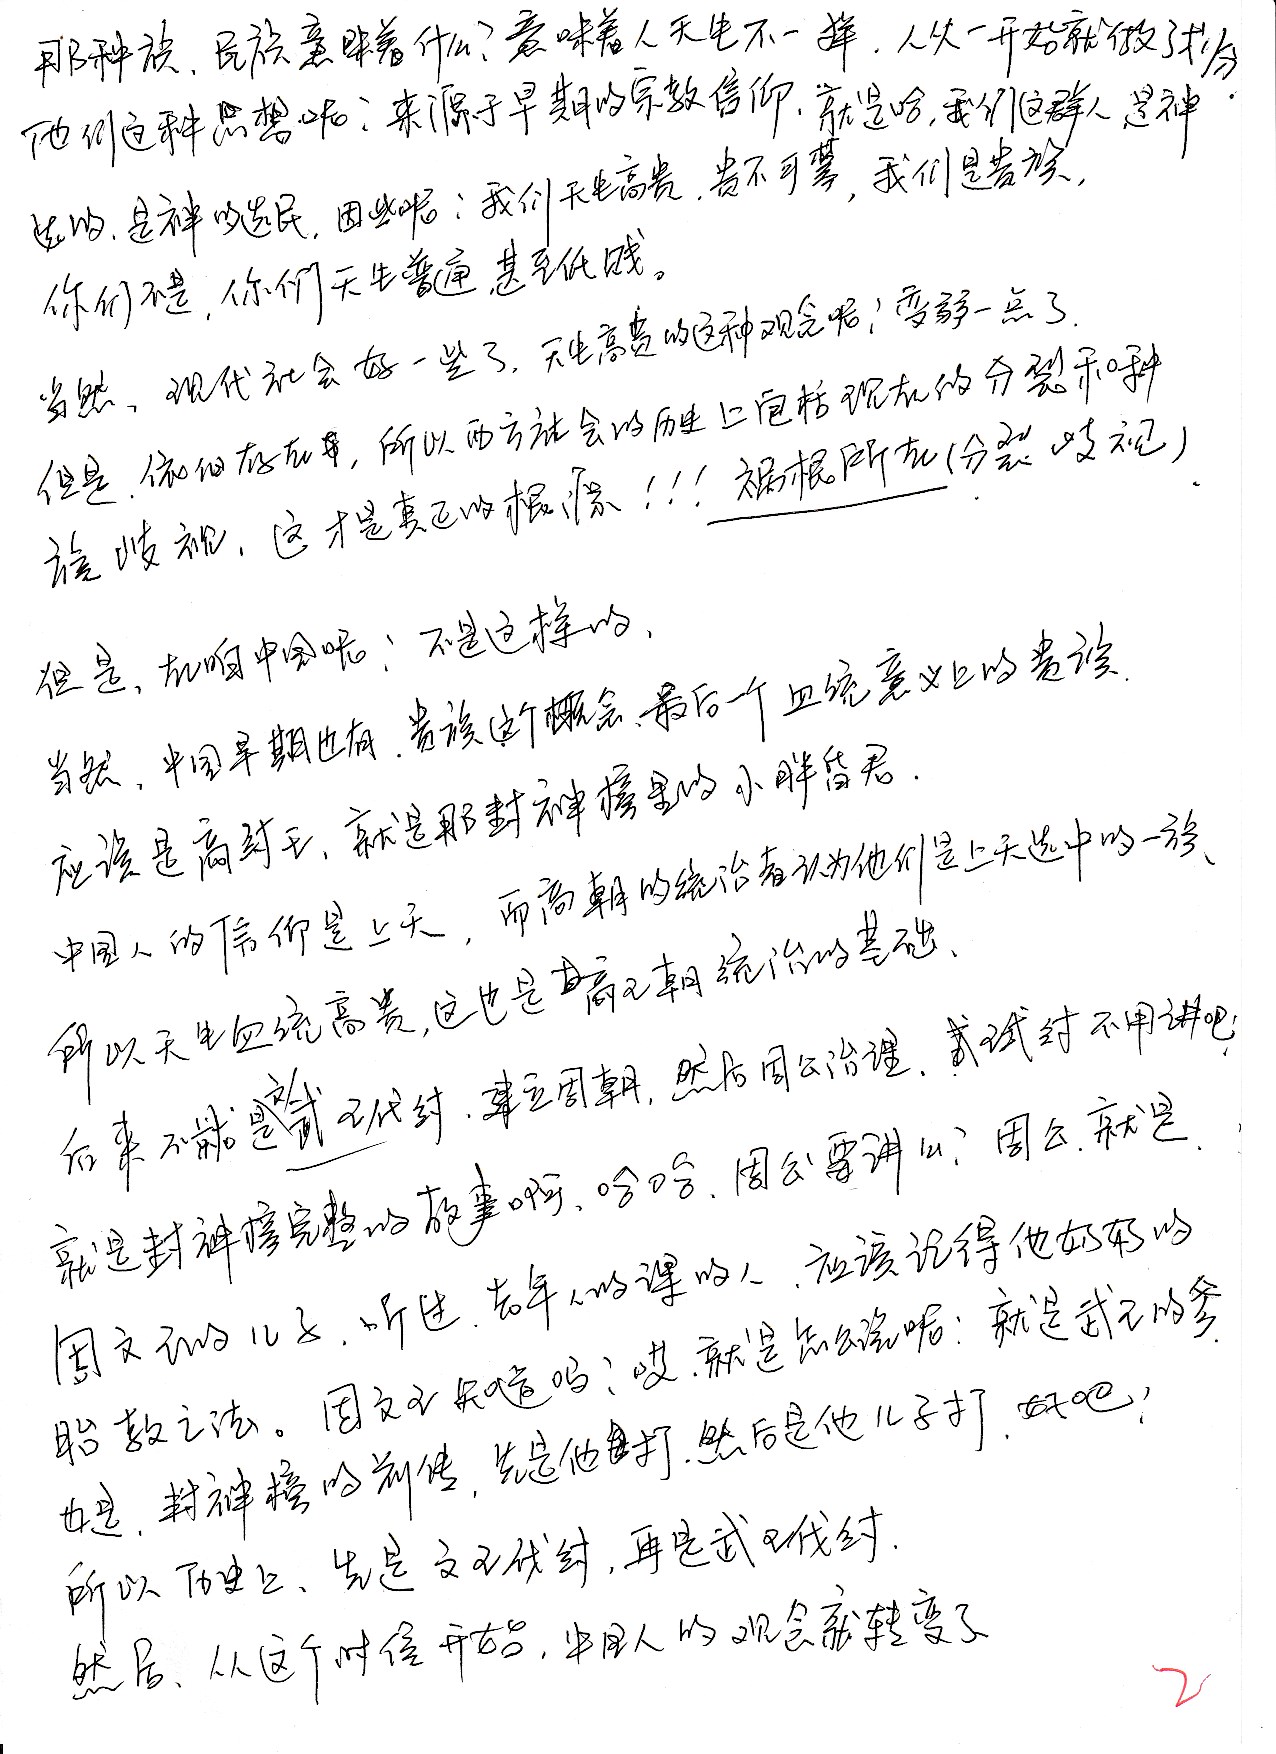 那种族、民族意味着什么？意味着人天生不一样，人从一开始就做了划分
他们这种思想呢？来源于早期的宗教信仰，就是哈，我们这群人，是神
选的，是神的选民，因此呢？我们天生高贵，贵不可攀，我们是贵族，
你们不是，你们天生普通，甚至低贱。
当然、现代社会好一些了，天生高贵的这种观念呢？变弱一点了．
但是，依但存在，所以西方社会的历史上包括现在的分裂和种
族歧视，这才是真正的根源！！！祸根所在（分裂 歧视）
但是、在咱中国呢？不是这样的、
当然、中国早期也有，贵族这个概念、最后一个血统意义上的贵族．
应该是商纣王，就是那封神榜里的小胖昏君．
中国人的信仰是上天，而商朝的统治者认为他们是上天选中的一族、
所以天生血统高贵，这也是商王朝统治的基础、
后来不就是文武王伐纣，建立周朝，然后周公治理，武王纣不用讲吧？
就是封神榜完整的故事啊、哈哈、周公要讲么？周公，就是．
周文王的儿子，听过，去年的课的人，应该记得他奶奶的
胎教之法。周文王知道吗？哎，就是怎么说呢？就是武王的爹．
也是，封神榜的前传，先是他打．然后是他儿子打，好吧？
所以历史上、先是文王伐纣，再是武王伐纣．
然后、从这个时候开始，中国人的观念就转变了
2